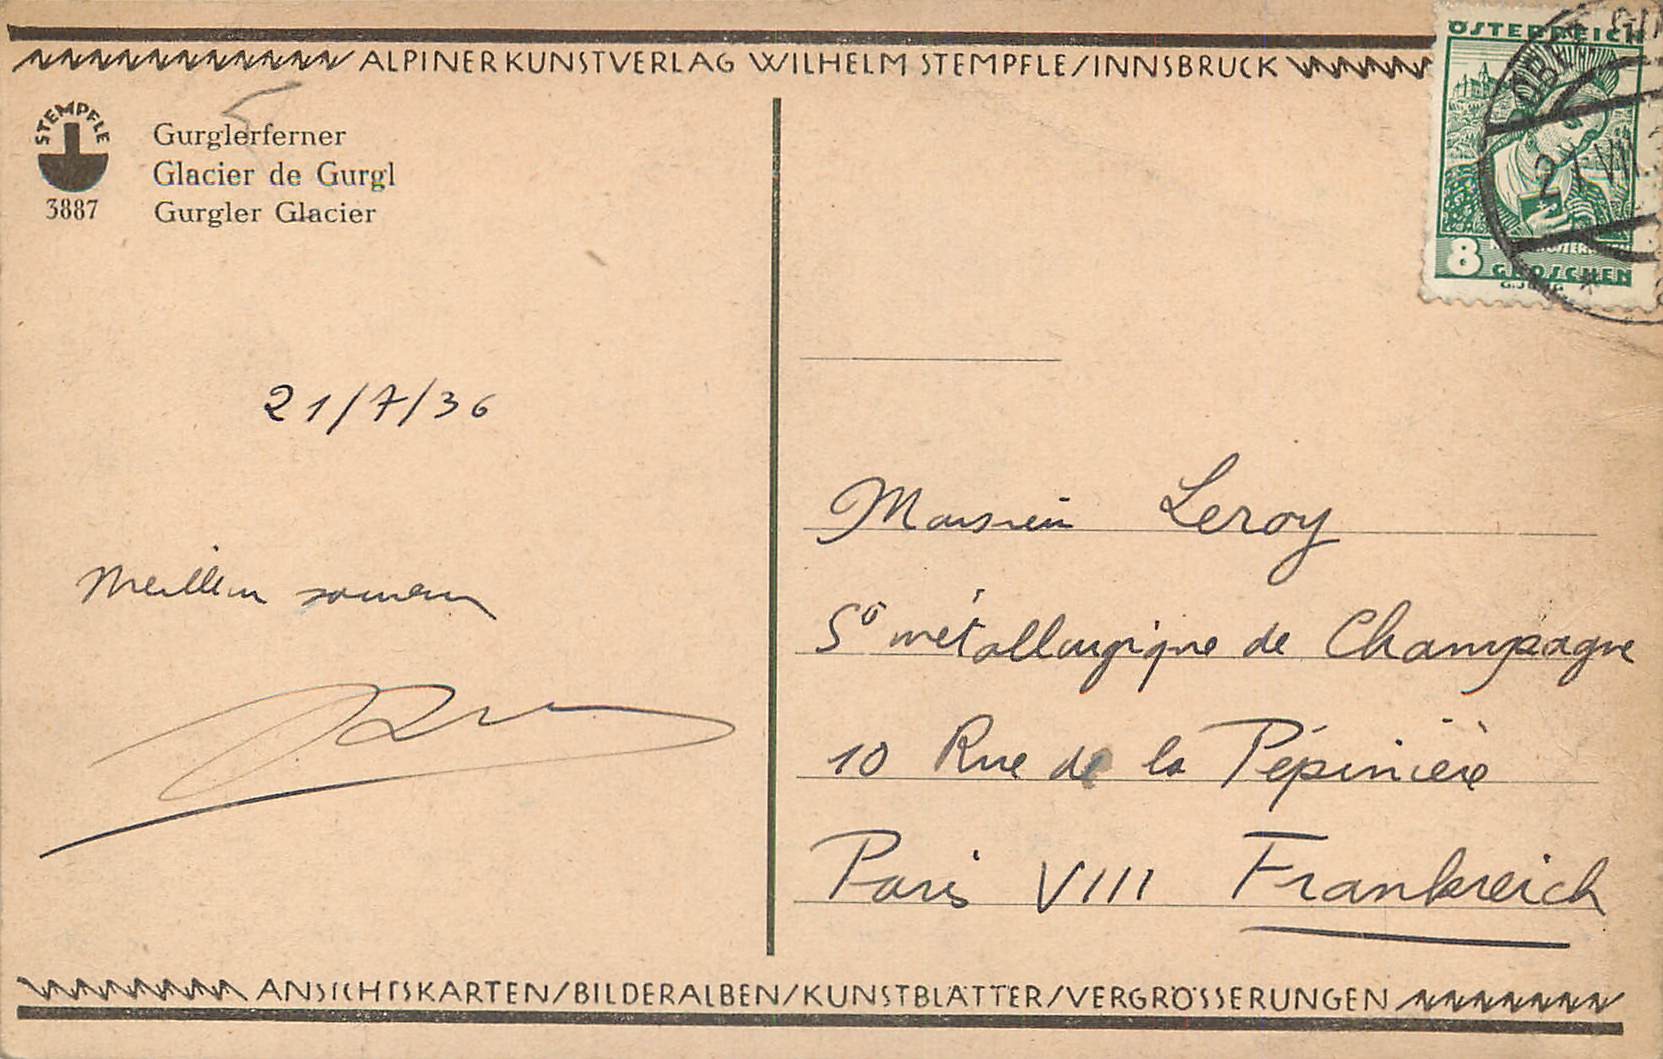 ALPINER KUNSTVERLAG WILHELM STEMPFLE/INNSBRUCK
STEMPFLE
3887
Gurglerferner
Glacier de Gurgl
Gurgler Glacier
ÖSTERREICH
8 GROSCHEN
21/7/36
Meilleur souvenir
Monsieur Leroy
Sé métallurgique de Champagne
10 Rue de la Pépinière
Paris VIII Frankreich
ANSICHTSKARTEN/BILDERALBEN/KUNSTBLÄTTER/VERGRÖSSERUNGEN